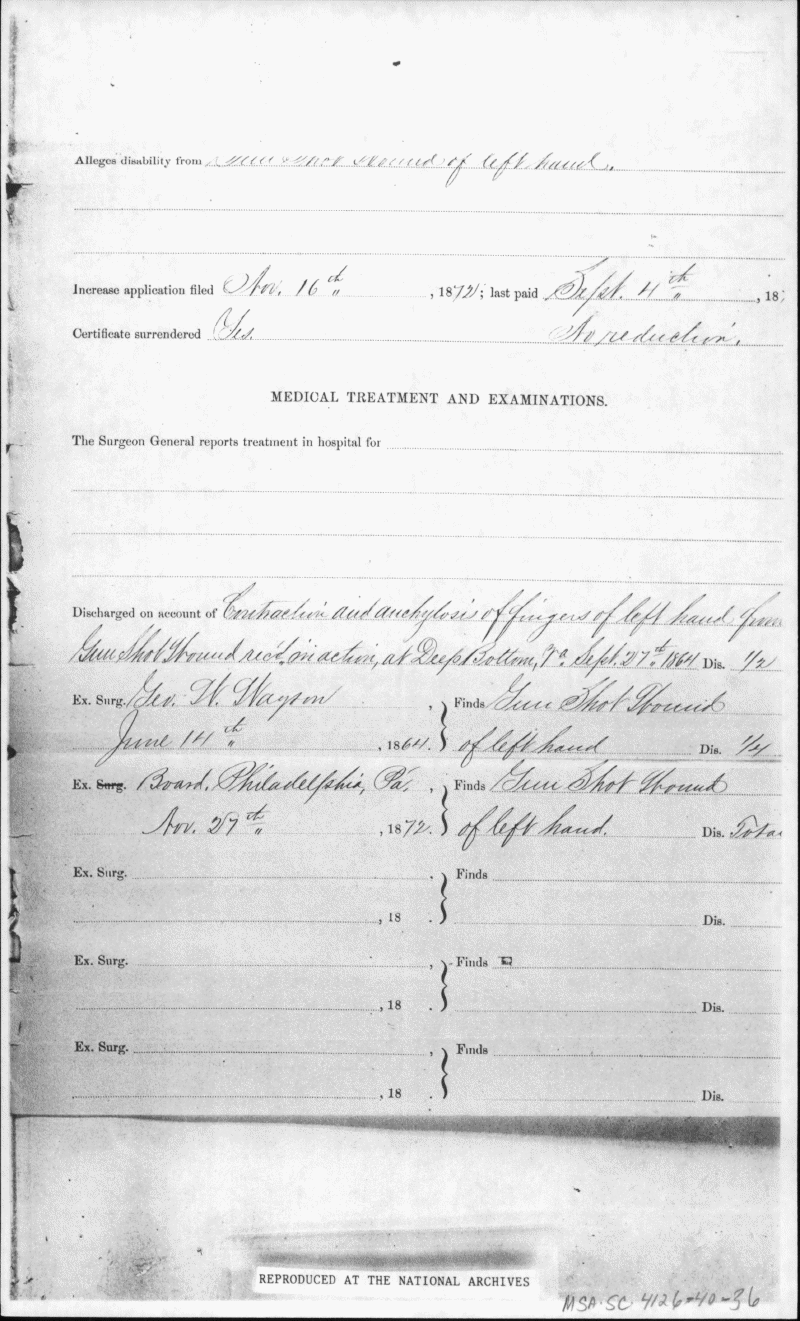 Alleges disability from Gun Shot Wound of left hand.
Increase application filed Nov. 16th, 1872; last paid Sept. 4th, 18
Certificate surrendered Yes. No reduction.
MEDICAL TREATMENT AND EXAMINATIONS.
The Surgeon General reports treatment in hospital for
Discharged on account of Contraction and anchylosis of fingers of left hand from
Gun Shot Wound rec'd in action, at Deep Bottom, Va. Sept. 27th 1864 Dis. 1/2
Ex. Surg. Geo. W. Wayson, Finds Gun Shot Wound
June 14th, 1864. of left hand Dis. 1/4
Ex. Surg. Board, Philadelphia, Pa., Finds Gun Shot Wound
Nov. 27th, 1872. of left hand. Dis. Tota
Ex. Surg. , Finds
, 18 . Dis.
Ex. Surg. , Finds
, 18 . Dis.
Ex. Surg. , Finds
, 18 . Dis.
REPRODUCED AT THE NATIONAL ARCHIVES
MSA SC 4126-40-36